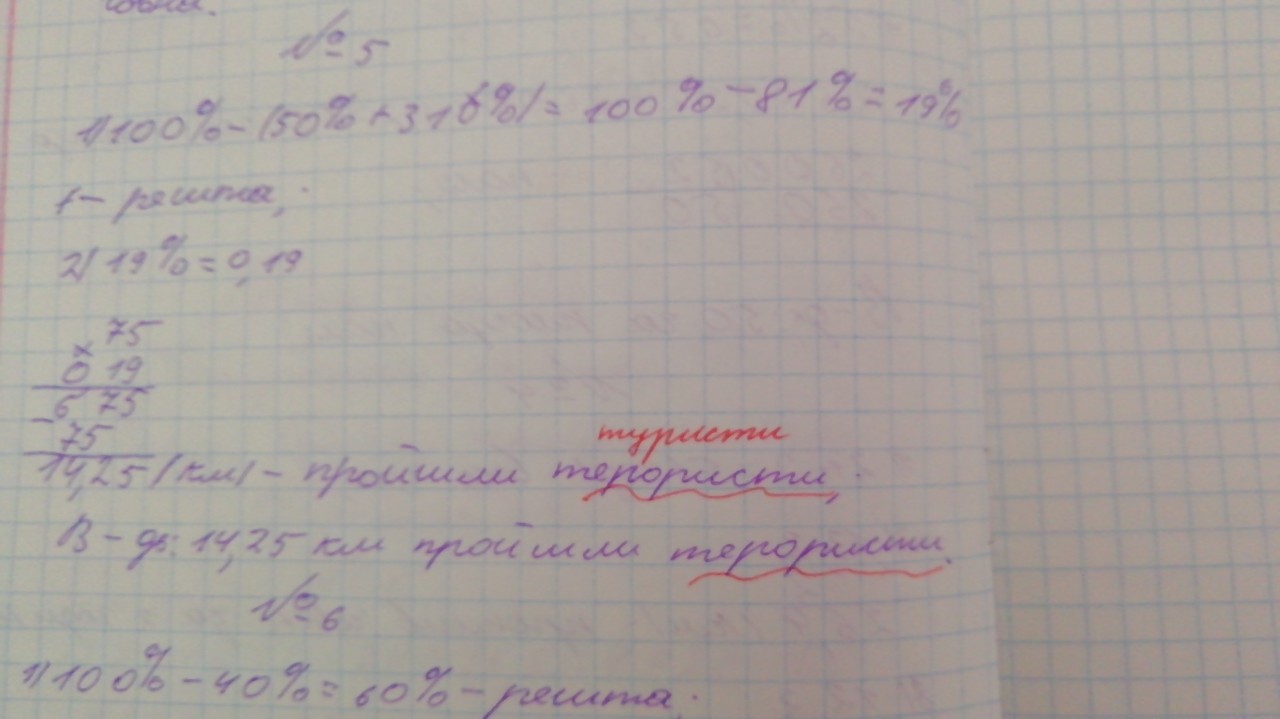 №5
1) 100% - (50% + 31%) = 100% - 81% = 19%
1 - решта;
2) 19% = 0,19
× 75
0 19
6 75
- 75
14,25 (км) - пройшли терористи;
туристи
В-дь: 14,25 км пройшли терористи.
№6
1) 100% - 40% = 60% - решта.